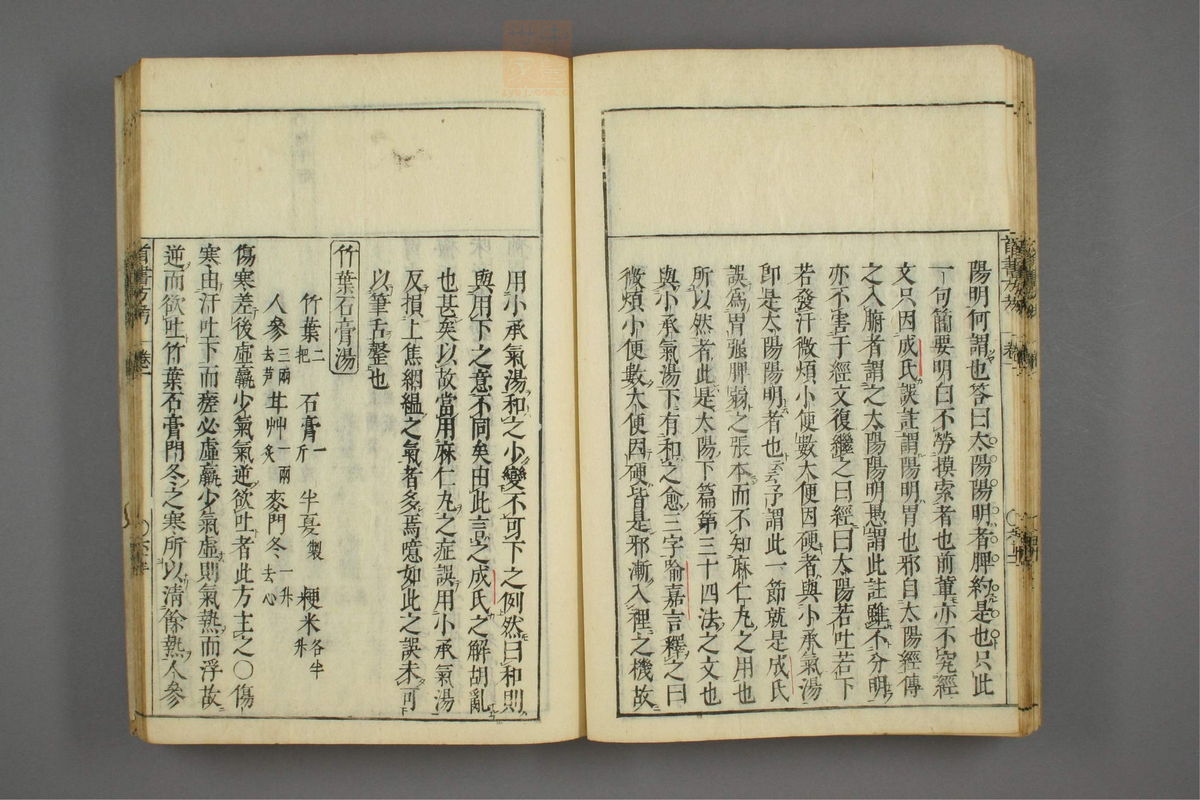 陽明何謂也答曰太陽陽明者脾約是也只此
一句簡要明白不勞摸索者也前輩亦不究經
文只因成氏誤註謂陽明胃也邪自太陽經傳
之入腑者謂之太陽陽明愚謂此註雖不分明
亦不害于經文復繼之曰經曰太陽若吐若下
若發汗微煩小便數大便因硬者與小承氣湯
卽是太陽陽明者也云云予謂此一節就是成氏
誤爲胃强脾弱之張本而不知麻仁丸之用也
所以然者此是太陽下篇第三十四法之文也
與小承氣湯下有和之愈三字喻嘉言釋之曰
微煩小便數大便因硬皆是邪漸入裡之機故
用小承氣湯和之少變不可下之例然曰和則
與用下之意不同矣由此言之成氏之解胡亂
也甚矣以故當用麻仁丸之症誤用小承氣湯
反損上焦絪縕之氣者多焉噫如此之誤未可
以筆舌罄也
竹葉石膏湯
竹葉二把 石膏一斤 半夏製 粳米各半升
人參三兩去芦 甘艸一兩炙 麥門冬一升去心
傷寒差後虛羸少氣氣逆欲吐者此方主之〇傷
寒由汗吐下而瘥必虛羸少氣虛則氣熱而浮故
逆而欲吐竹葉石膏門冬之寒所以清餘熱人參